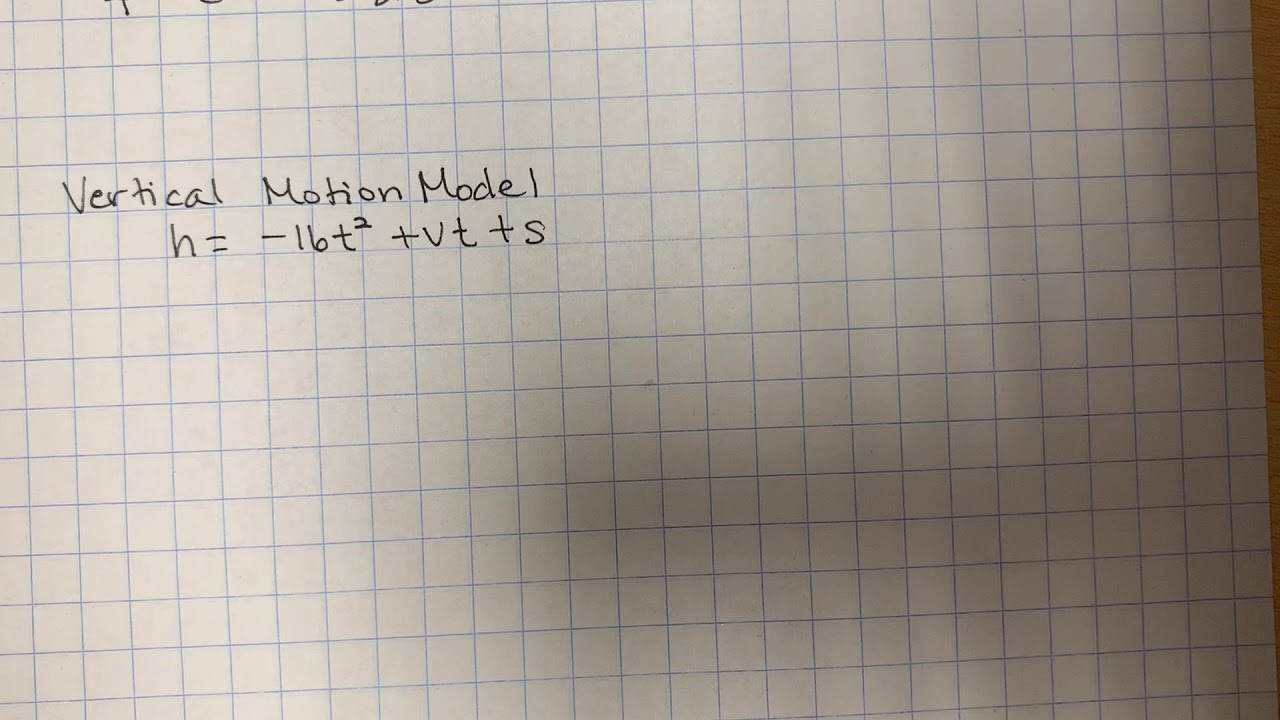 Vertical Motion Model
h = -16t² +vt +s